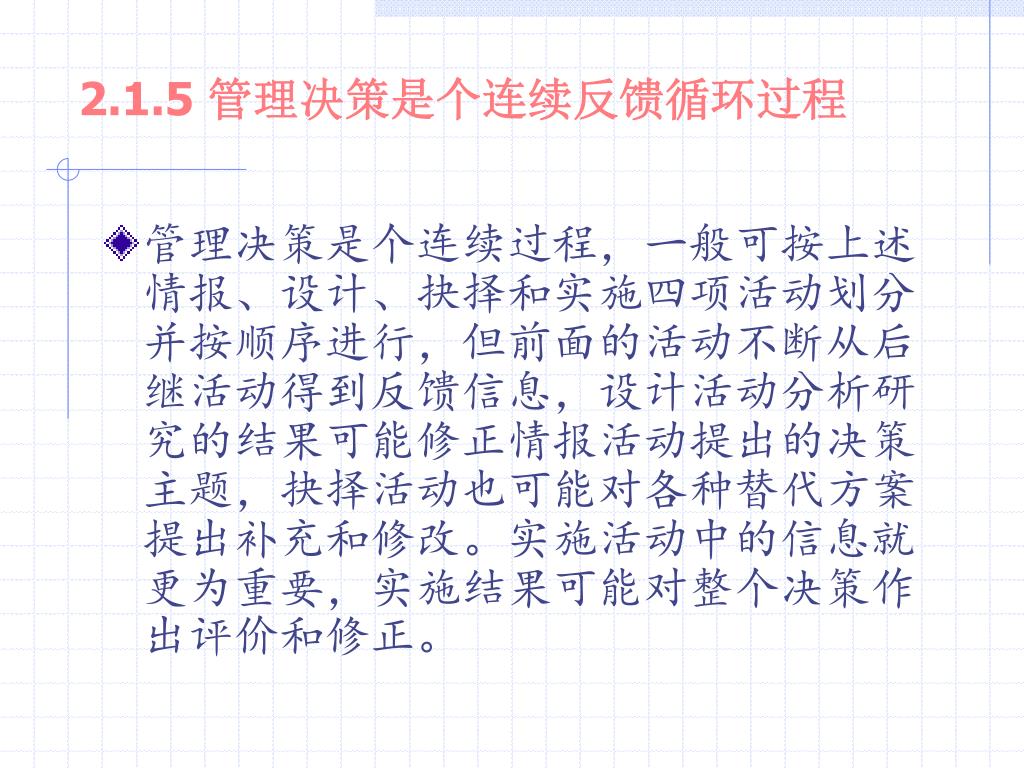 2.1.5 管理决策是个连续反馈循环过程
管理决策是个连续过程，一般可按上述
情报、设计、抉择和实施四项活动划分
并按顺序进行，但前面的活动不断从后
继活动得到反馈信息，设计活动分析研
究的结果可能修正情报活动提出的决策
主题，抉择活动也可能对各种替代方案
提出补充和修改。实施活动中的信息就
更为重要，实施结果可能对整个决策作
出评价和修正。